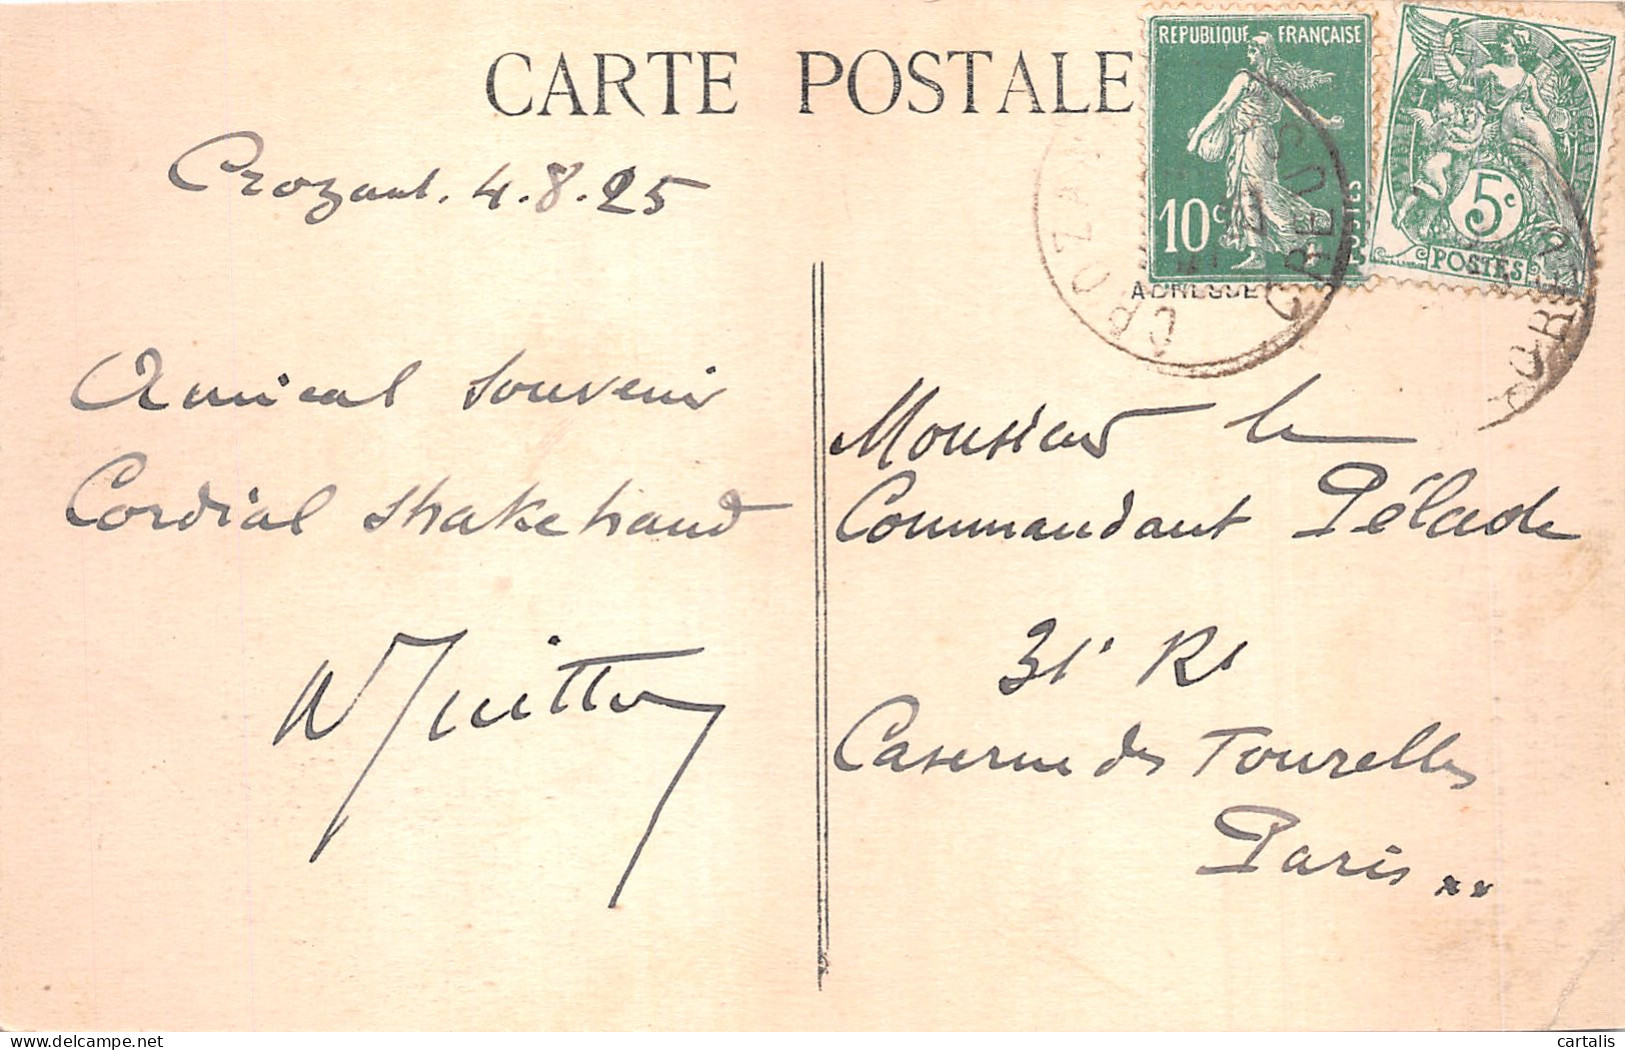 CARTE POSTALE
REPUBLIQUE FRANÇAISE
10c
POSTES
5c
POSTES
CROZAN
CREUS
ADRESSE
Crozant. 4.8.25
Amical souvenir
Cordial shakehand
Monsieur le
Commandant Pélade
31e Rt
Caserne des Tourelles
Paris..
cartalis